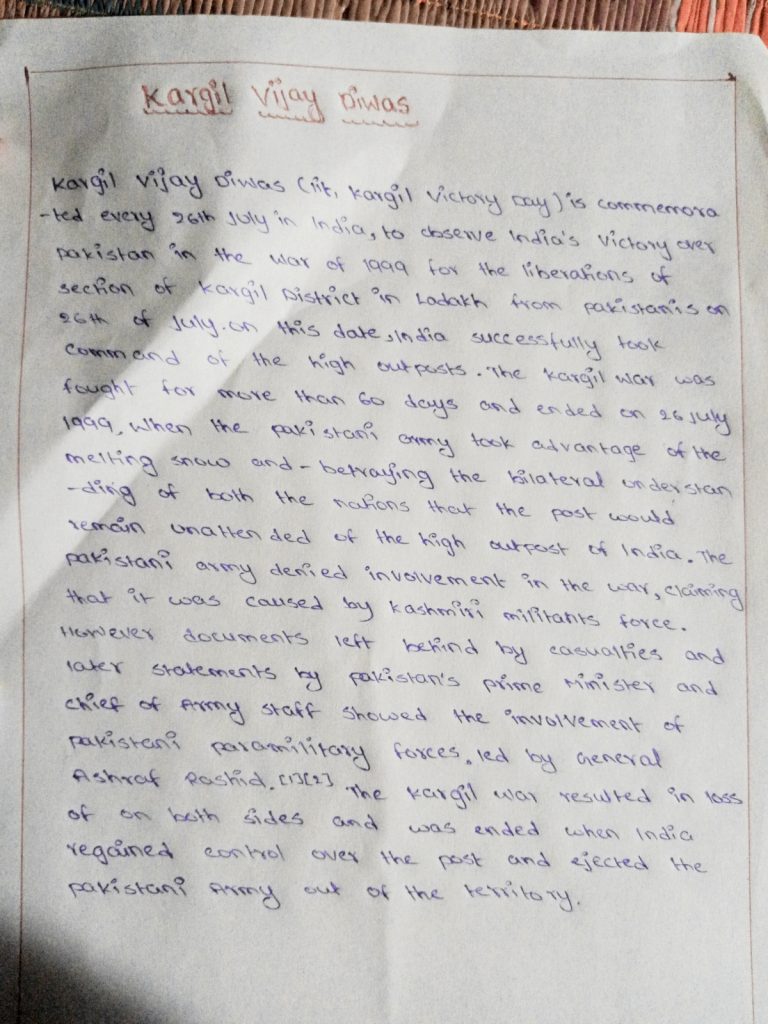 Kargil Vijay Diwas
Kargil Vijay Diwas (lit, Kargil Victory Day) is commemora
-ted every 26th July in India, to observe India's Victory over
pakistan in the war of 1999 for the liberations of
section of Kargil District in Ladakh from pakistanis on
26th of July. on this date, India successfully took
command of the high outposts. The Kargil war was
fought for more than 60 days and ended on 26 July
1999, when the pakistani army took advantage of the
melting snow and - betraying the bilateral understan
-ding of both the nations that the post would
remain unattended of the high outpost of India. The
pakistani army denied involvement in the war, claiming
that it was caused by Kashmiri militants force.
However documents left behind by casualties and
later statements by pakistan's prime Minister and
chief of Army staff showed the involvement of
pakistani paramilitary forces, led by General
Ashraf Rashid. [1][2] The Kargil war resulted in loss
of on both sides and was ended when India
regained control over the post and ejected the
pakistani Army out of the territory.